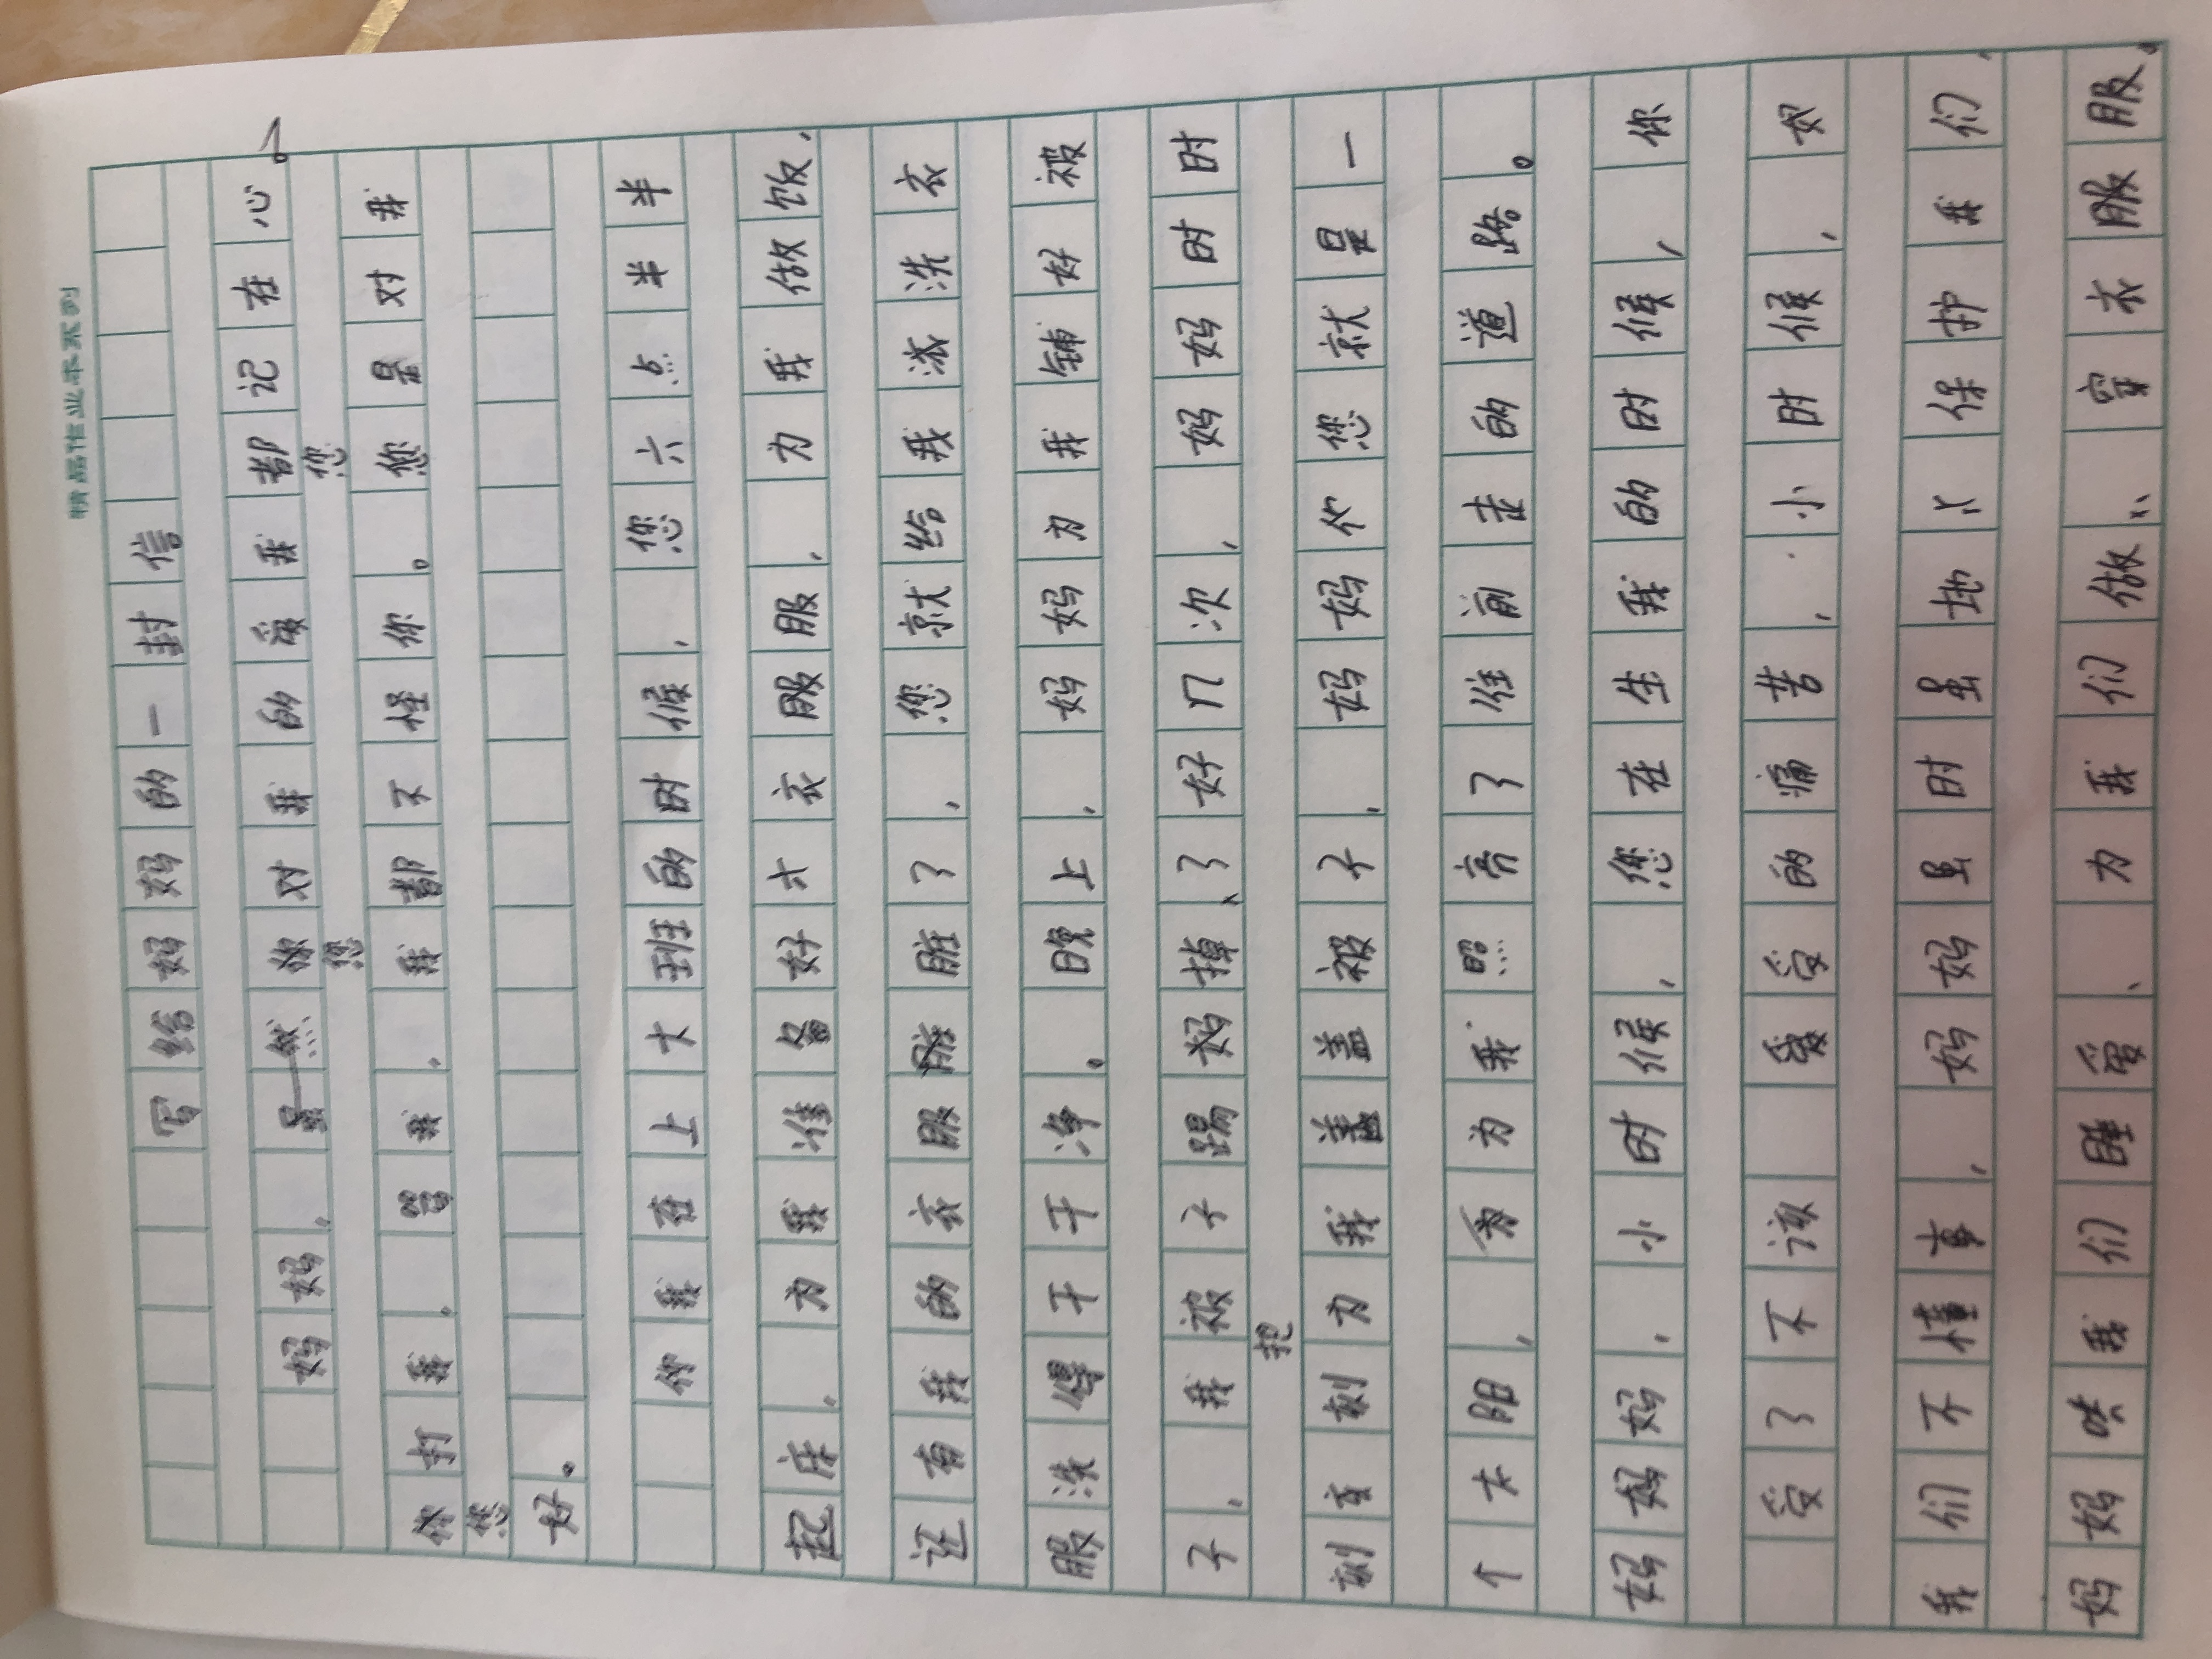 精品作业本系列
写给妈妈的一封信
妈妈，虽然你对我的爱我都记在心。
您 您
你打我，骂我，我都不怪你。您是对我
您
好。
你我在上大班的时候，您六点半半
起床，为我准备好才衣服服，为我做饭，
还有我的衣服脏脏了，您就给我洗衣
服洗得干干净。晚上，妈妈为我铺好被
子，我被子踢妈掉了好几次，妈妈时时
把
刻刻为我盖盖被子，妈妈你您就是一
个大阳，为为我照亮了往前走的道路。
妈妈，小时候，您在生我的时候，你
受了不该爱受的痛苦，小时候，如
我们不懂事，妈妈虽时虽地保护我们，
妈妈哄我们睡爱、为我们做、穿衣服服。